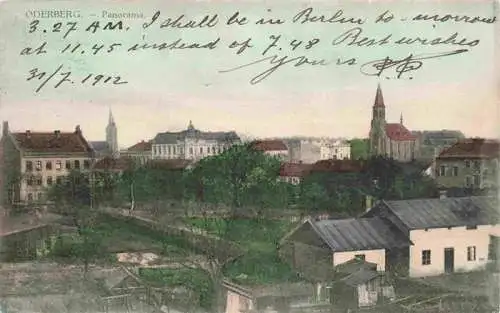 ODERBERG. – Panorama.
3.27 AM I shall be in Berlin to-morrow
at 11.45 instead of 7.48 Best wishes
Yours
31/7. 1912